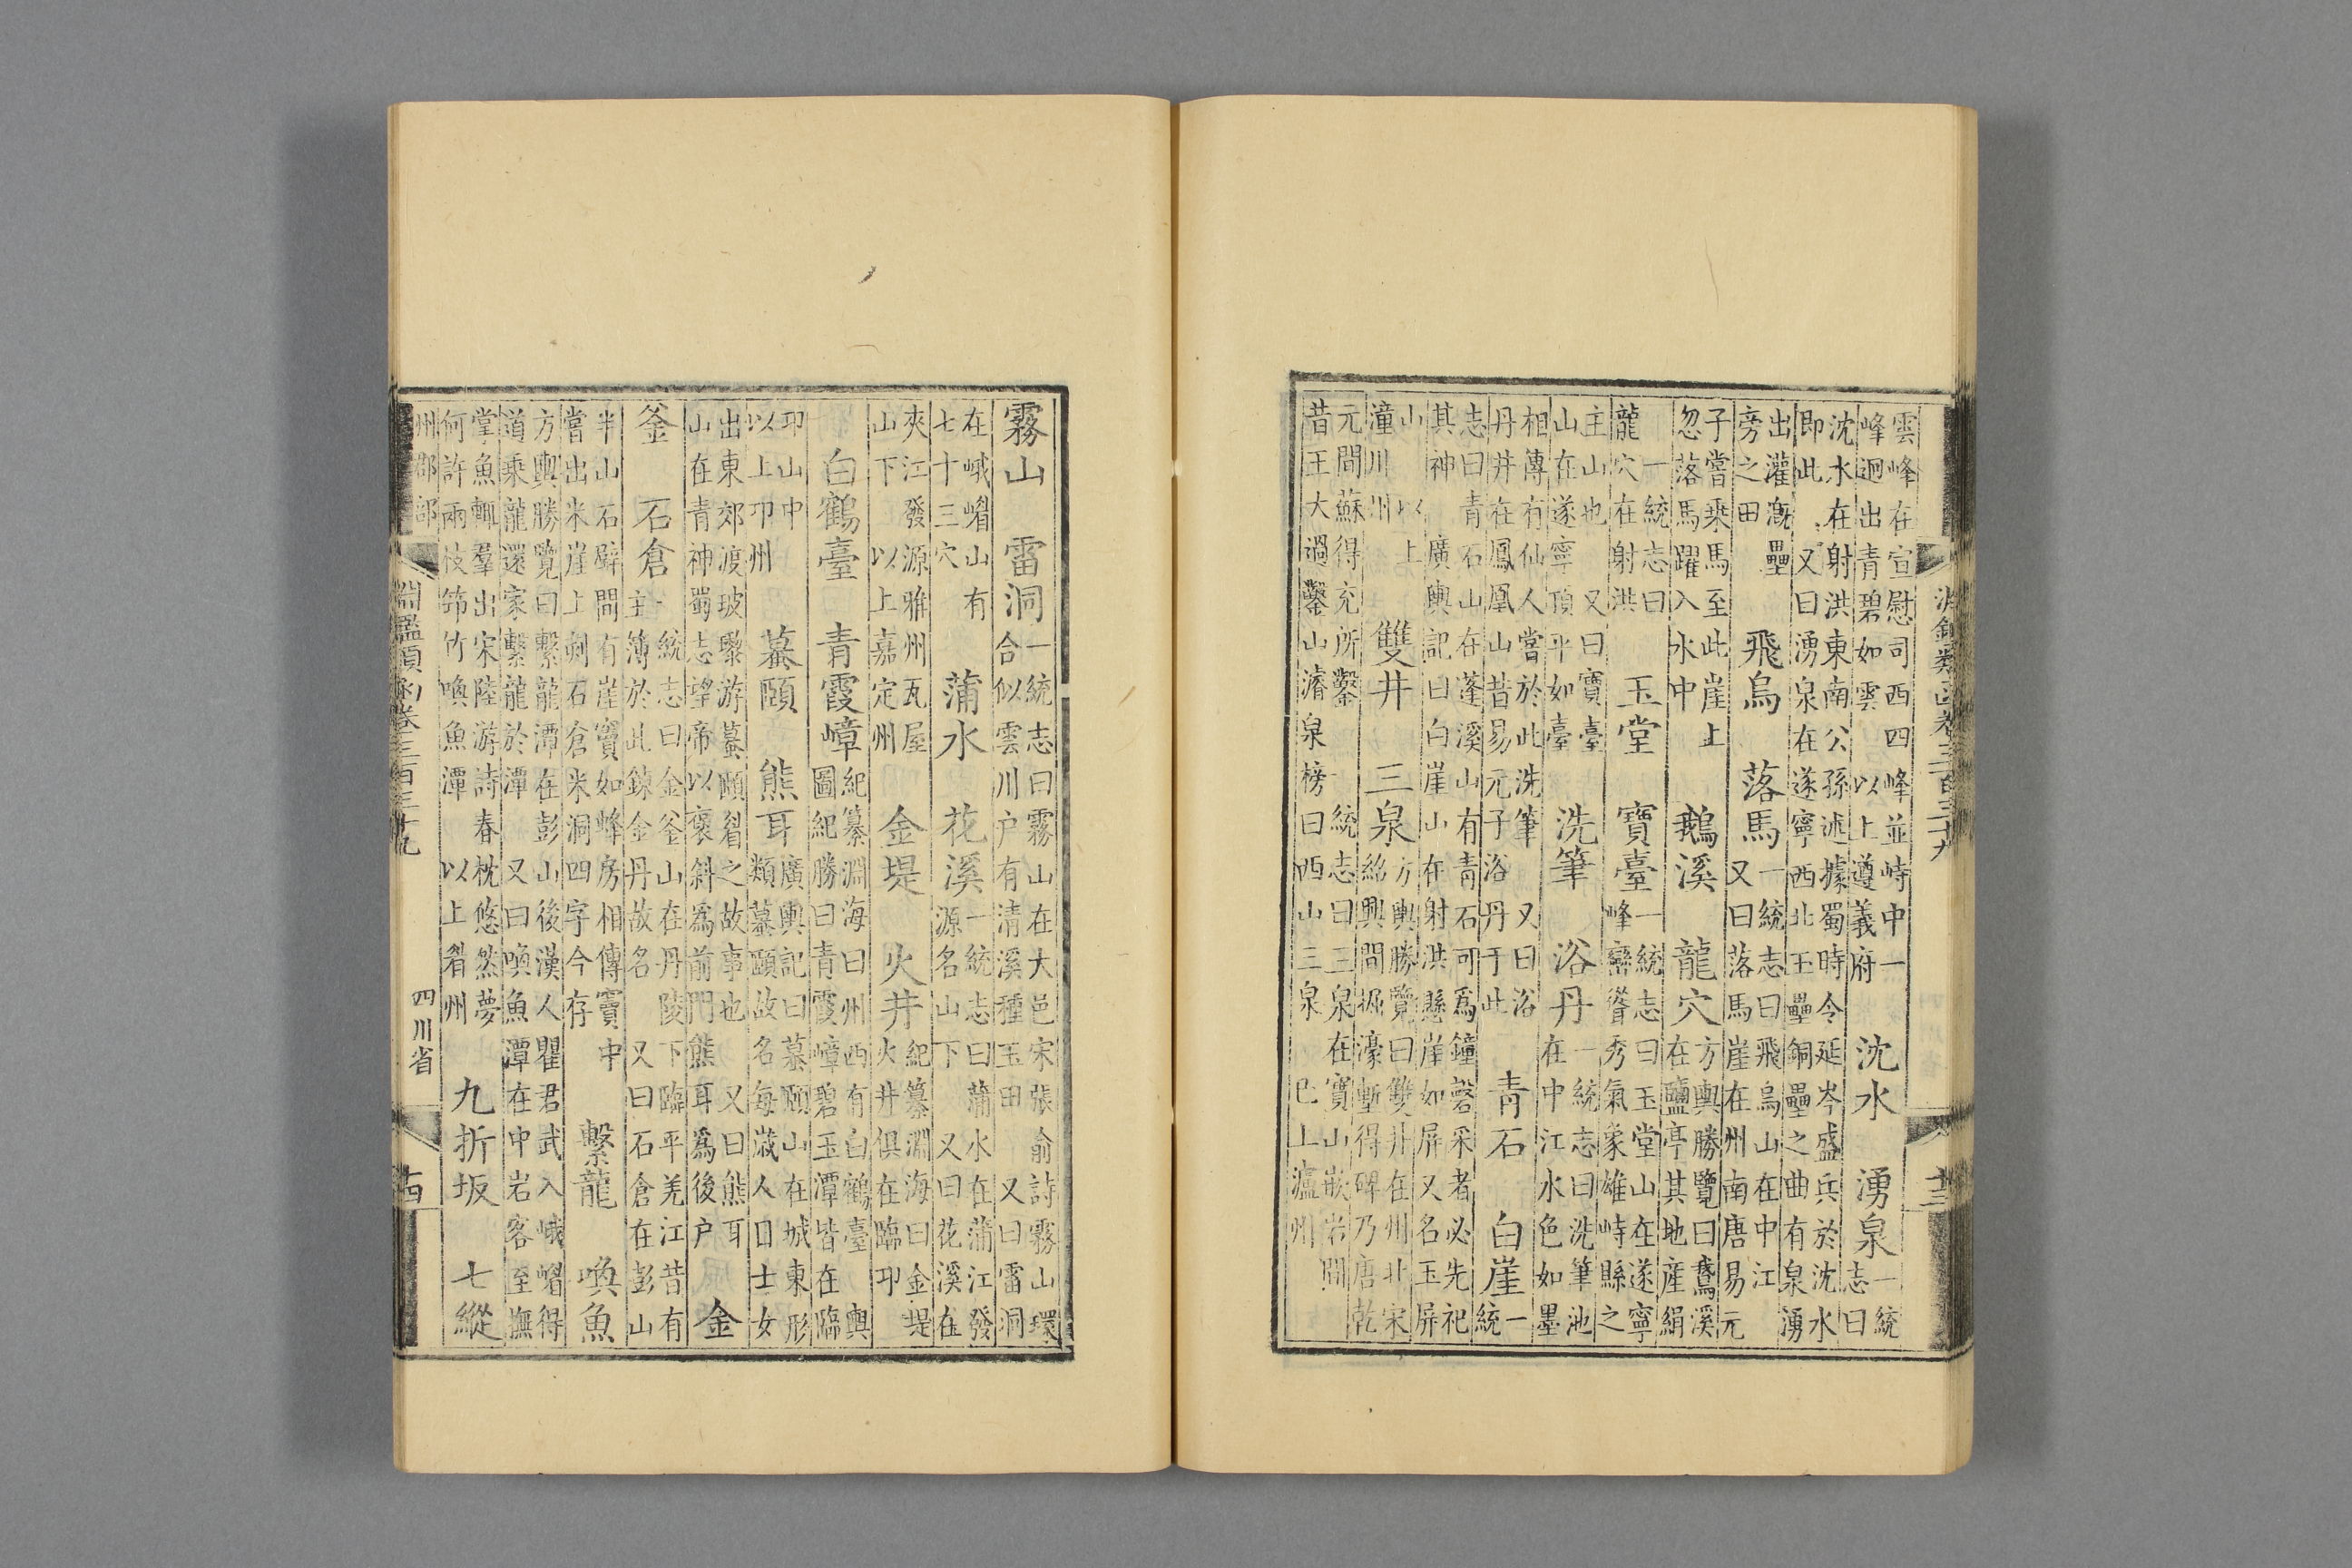 淵鑑類函卷三百三十九
十三
雲峰在宣慰司西四峰並峙中一
峰迴出青碧如雲 以上遵義府
沈水 湧泉
一統
志曰
沈水在射洪東南公孫述據蜀時令延岑盛兵於沈水
即此 又曰湧泉在遂寧西北玉壘銅壘之曲有泉湧
出灌漑壘
旁之田
飛烏 落馬
一統志曰飛烏山在中江
又曰落馬崖在州南唐易元
子嘗乘馬至此崖上
忽落馬躍入水中
鵝溪 龍穴
方輿勝覽曰鵞溪
在鹽亭其地産絹
一統志曰
龍穴在射洪
玉堂 寶臺
一統志曰玉堂山在遂寧
峰巒聳秀氣象雄峙縣之
主山也 又曰寶臺
山在遂寧頂平如臺
洗筆 浴丹
一統志曰洗筆池
在中江水色如墨
相傳有仙人嘗於此洗筆 又曰浴
丹井在鳳凰山昔易元子浴丹于此
青石 白崖
一
統
志曰青石山在蓬溪山有青石可爲鐘磬采者必先祀
其神 廣輿記曰白崖山在射洪懸崖如屏又名玉屏
山 以上
潼川州
雙井 三泉
方輿勝覽曰雙井在州北宋
紹興間掘濠塹得碑乃唐乾
元間蘇得充所鑿 一統志曰三泉在寶山嵌岩間
昔王大過鑿山濬泉榜曰西山三泉 已上瀘州
霧山 雷洞
一統志曰霧山在大邑宋張俞詩霧山環
合似雲川户有清溪種玉田 又曰雷洞
在峨嵋山有
七十三穴
蒲水 花溪
一統志曰蒲水在蒲江發
源名山下 又曰花溪在
夾江發源雅州瓦屋
山下 以上嘉定州
金堤 火井
紀纂淵海曰金堤
火井俱在臨卭
白鶴臺 青霞嶂
紀纂淵海曰州西有白鶴臺 輿
圖紀勝曰青霞嶂碧玉潭皆在臨
卭山中
以上卭州
蟇頤 熊耳
廣輿記曰蟇頤山在城東形
類蟇頤故名每歲人日士女
出東郊渡玻瓈游蟇頤眉之故事也 又曰熊耳
山在青神蜀志望帝以褒斜爲前門熊耳爲後户
金
釜 石倉
一統志曰金釜山在丹陵下臨平羌江昔有
主簿於此錬金丹故名 又曰石倉在彭山
半山石壁間有崖竇如蜂房相傳竇中
嘗出米崖上刻石倉米洞四字今存
繫龍 喚魚
方輿勝覽曰繫龍潭在彭山後漢人瞿君武入峨嵋得
道乘龍還家繫龍於潭 又曰喚魚潭在中岩客至撫
堂魚輒羣出宋陸游詩春枕悠然夢
何許兩枝笻竹喚魚潭 以上眉州
九折坂 七縱
州郡部
淵鑑類函卷三百三十九
四川省
十四